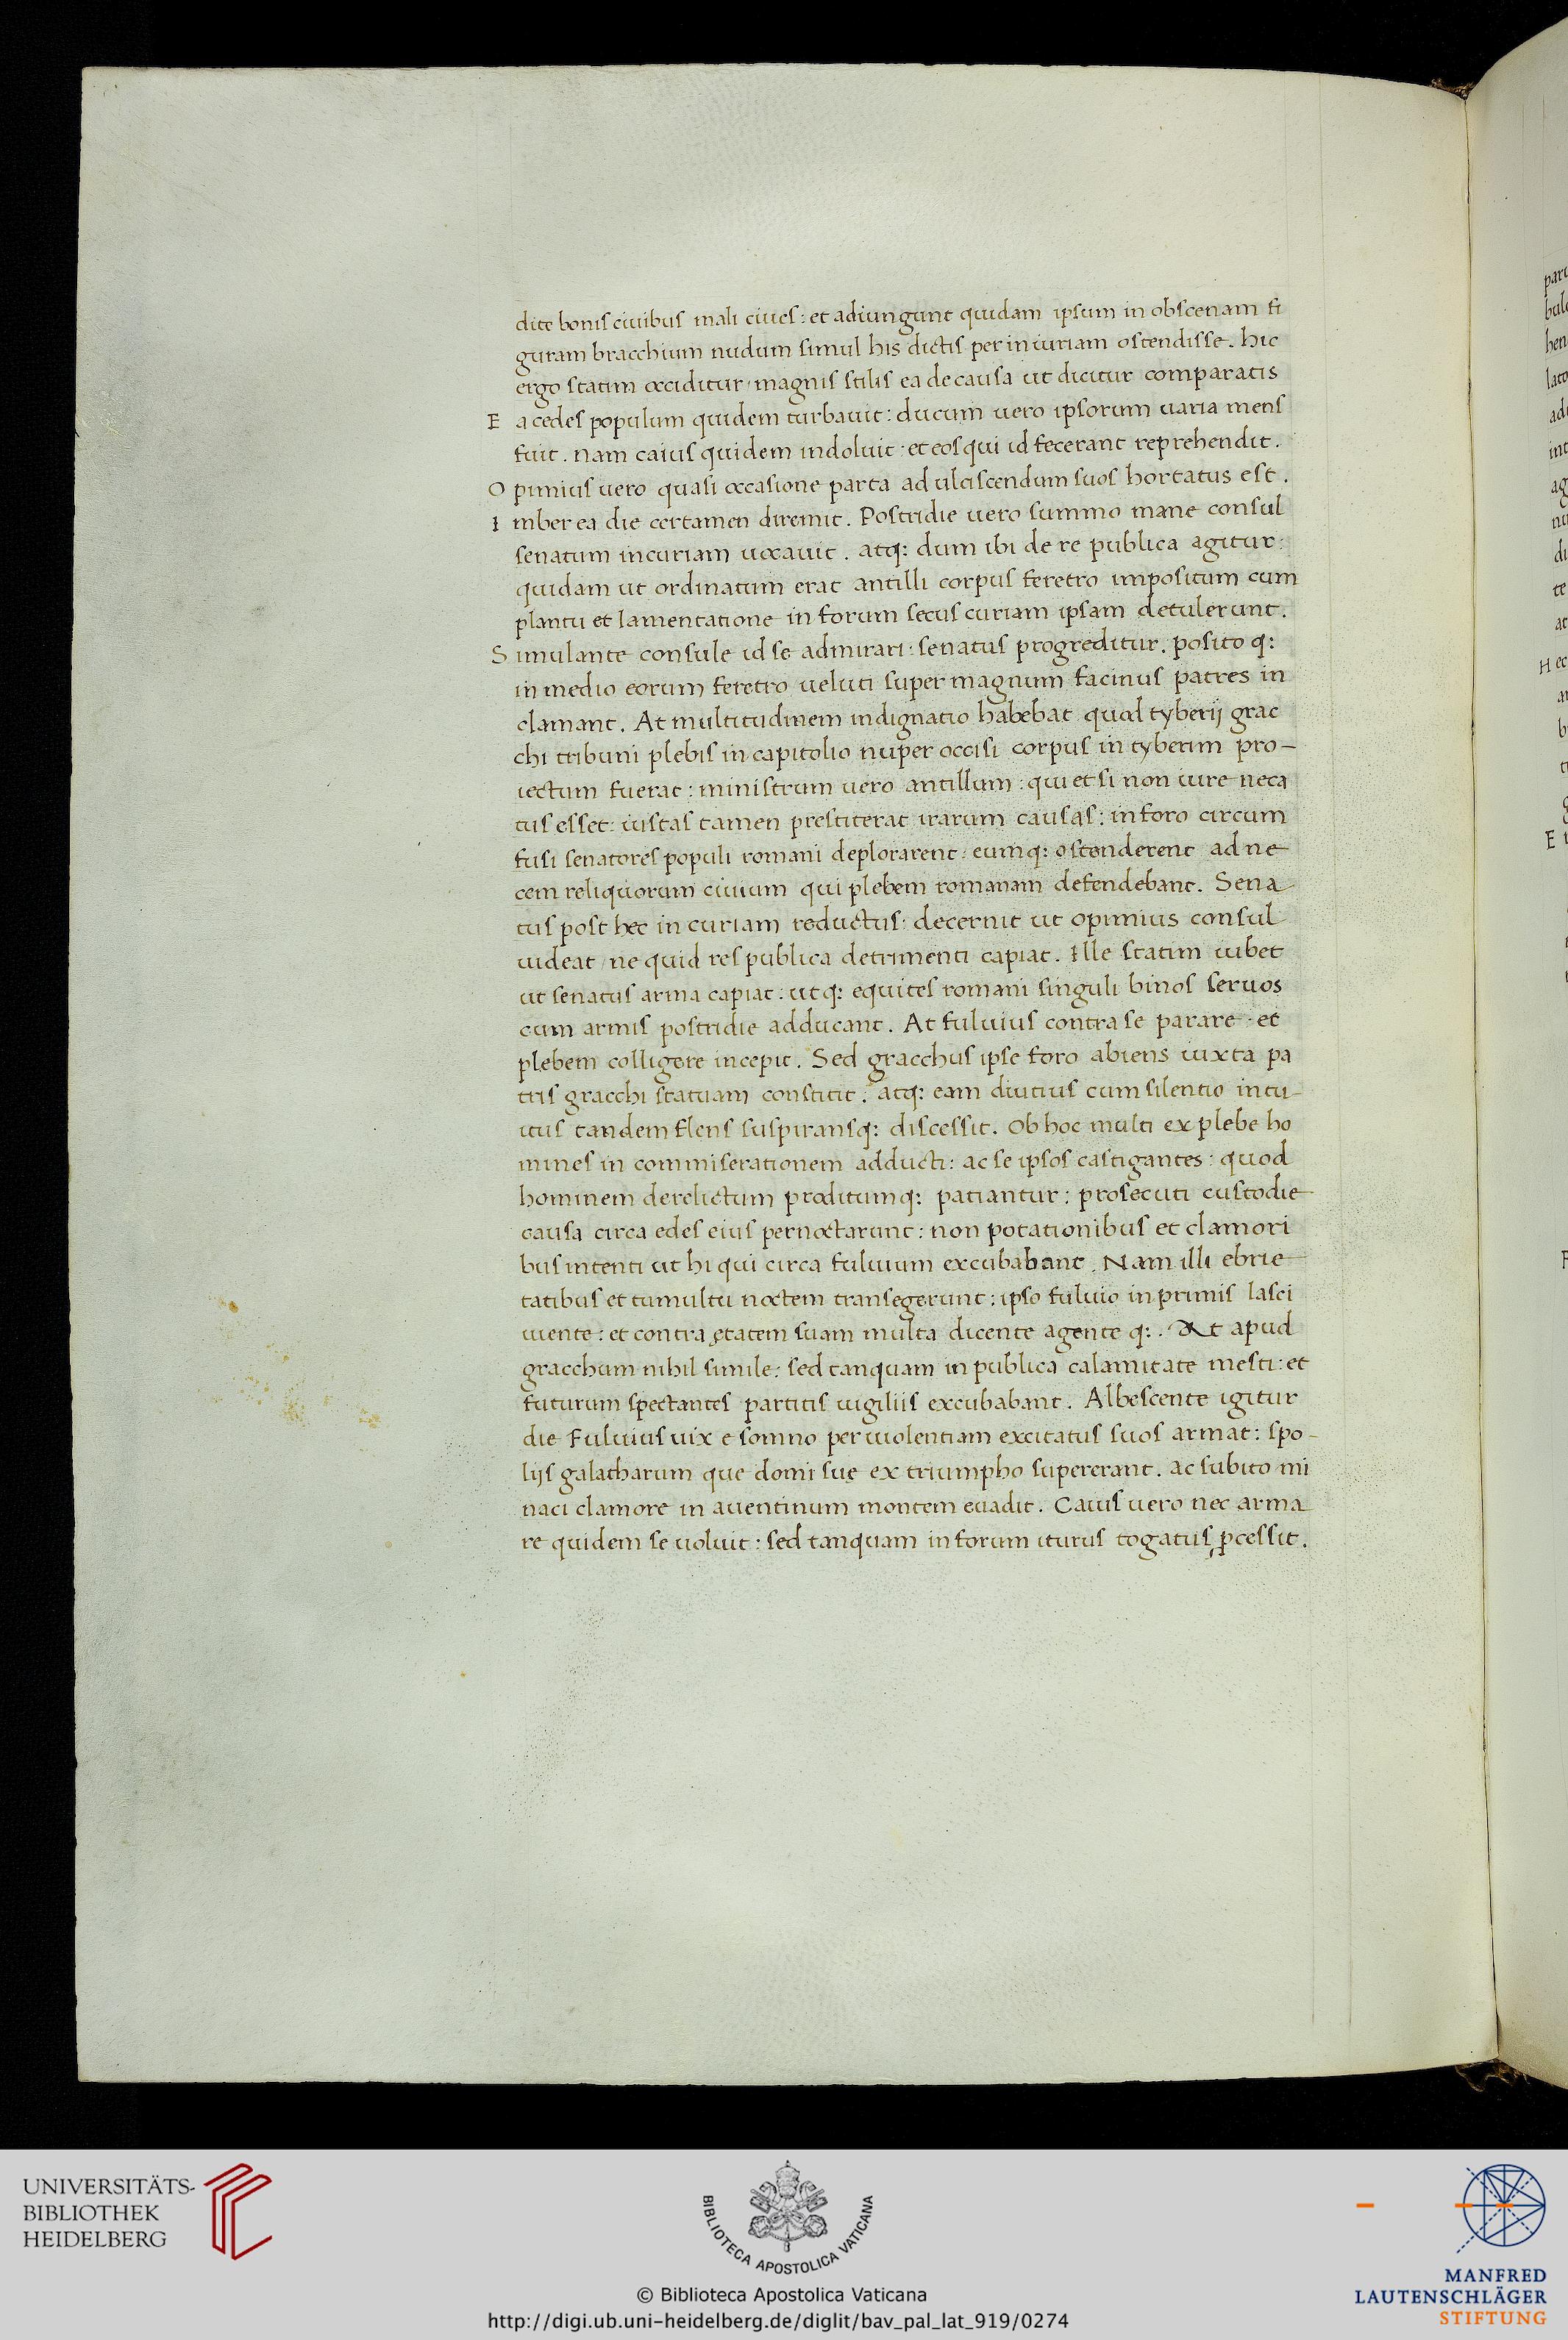 dite bonis ciuibus mali ciues: et adiungunt quidam ipsum in obscenam fi
guram bracchium nudum simul his dictis per iniuriam ostendisse. hic
ergo statim occiditur magnis stilis ea de causa ut dicitur comparatis
E a cedes populum quidem turbauit: ducum uero ipsorum uaria mens
fuit. nam caius quidem indoluit: et eos qui id fecerant reprehendit.
O pimius uero quasi occasione parta ad ulciscendum suos hortatus est.
I mber ea die certamen diremit. Postridie uero summo mane consul
senatum incuriam uocauit. atq: dum ibi de re publica agitur:
quidam ut ordinatum erat antilli corpus feretro impositum cum
plantu et lamentatione in forum secus curiam ipsam detulerunt.
S imulante consule id se admirari: senatus progreditur. posito q:
in medio eorum feretro ueluti super magnum facinus patres in
clamant. At multitudinem indignatio habebat quod tyberij grac
chi tribuni plebis in capitolio nuper occisi corpus in tyberim pro-
iectum fuerat: ministrum uero antillum: qui et si non iure neca
tus esset: iustas tamen prestiterat irarum causas: in foro circum
fusi senatores populi romani deplorarent: eumq: ostenderent ad ne
cem reliquorum ciuium qui plebem romanam defendebant. Sena
tus post hec in curiam reductus: decernit ut opimius consul
uideat ne quid res publica detrimenti capiat. Ille statim iubet
ut senatus arma capiat: ut q: equites romani singuli binos seruos
cum armis postridie adducant. At fuluius contra se parare et
plebem colligere incepit. Sed gracchus ipse foro abiens iuxta pa
tris gracchi statuam constitit. atq: eam diutius cum silentio intu-
itus tandem flens suspiransq: discessit. Ob hoc multi ex plebe ho
mines in commiserationem adducti: ac se ipsos castigantes: quod
hominem derelictum proditumq: patiantur: prosecuti custodie
causa circa edes eius pernoctarunt: non potationibus et clamori
bus intenti ut hi qui circa fuluium excubabant. Nam illi ebrie
tatibus et tumultu noctem transegerunt: ipso fuluio in primis lasci
uiente: et contra ętatem suam multa dicente agente q:. At apud
gracchum nihil simile: sed tanquam in publica calamitate mesti: et
futurum spectantes partitis uigiliis excubabant. Albescente igitur
die Fuluius uix e somno per uiolentiam excitatus suos armat: spo-
lijs galatharum que domi suę ex triumpho supererant. ac subito mi
naci clamore in auentinum montem euadit. Caius uero nec arma
re quidem se uoluit: sed tanquam in forum iturus togatus ꝓcessit.
UNIVERSITÄTS-
BIBLIOTHEK
HEIDELBERG
BIBLIOTECA APOSTOLICA VATICANA
© Biblioteca Apostolica Vaticana
http://digi.ub.uni-heidelberg.de/diglit/bav_pal_lat_919/0274
MANFRED
LAUTENSCHLÄGER
STIFTUNG